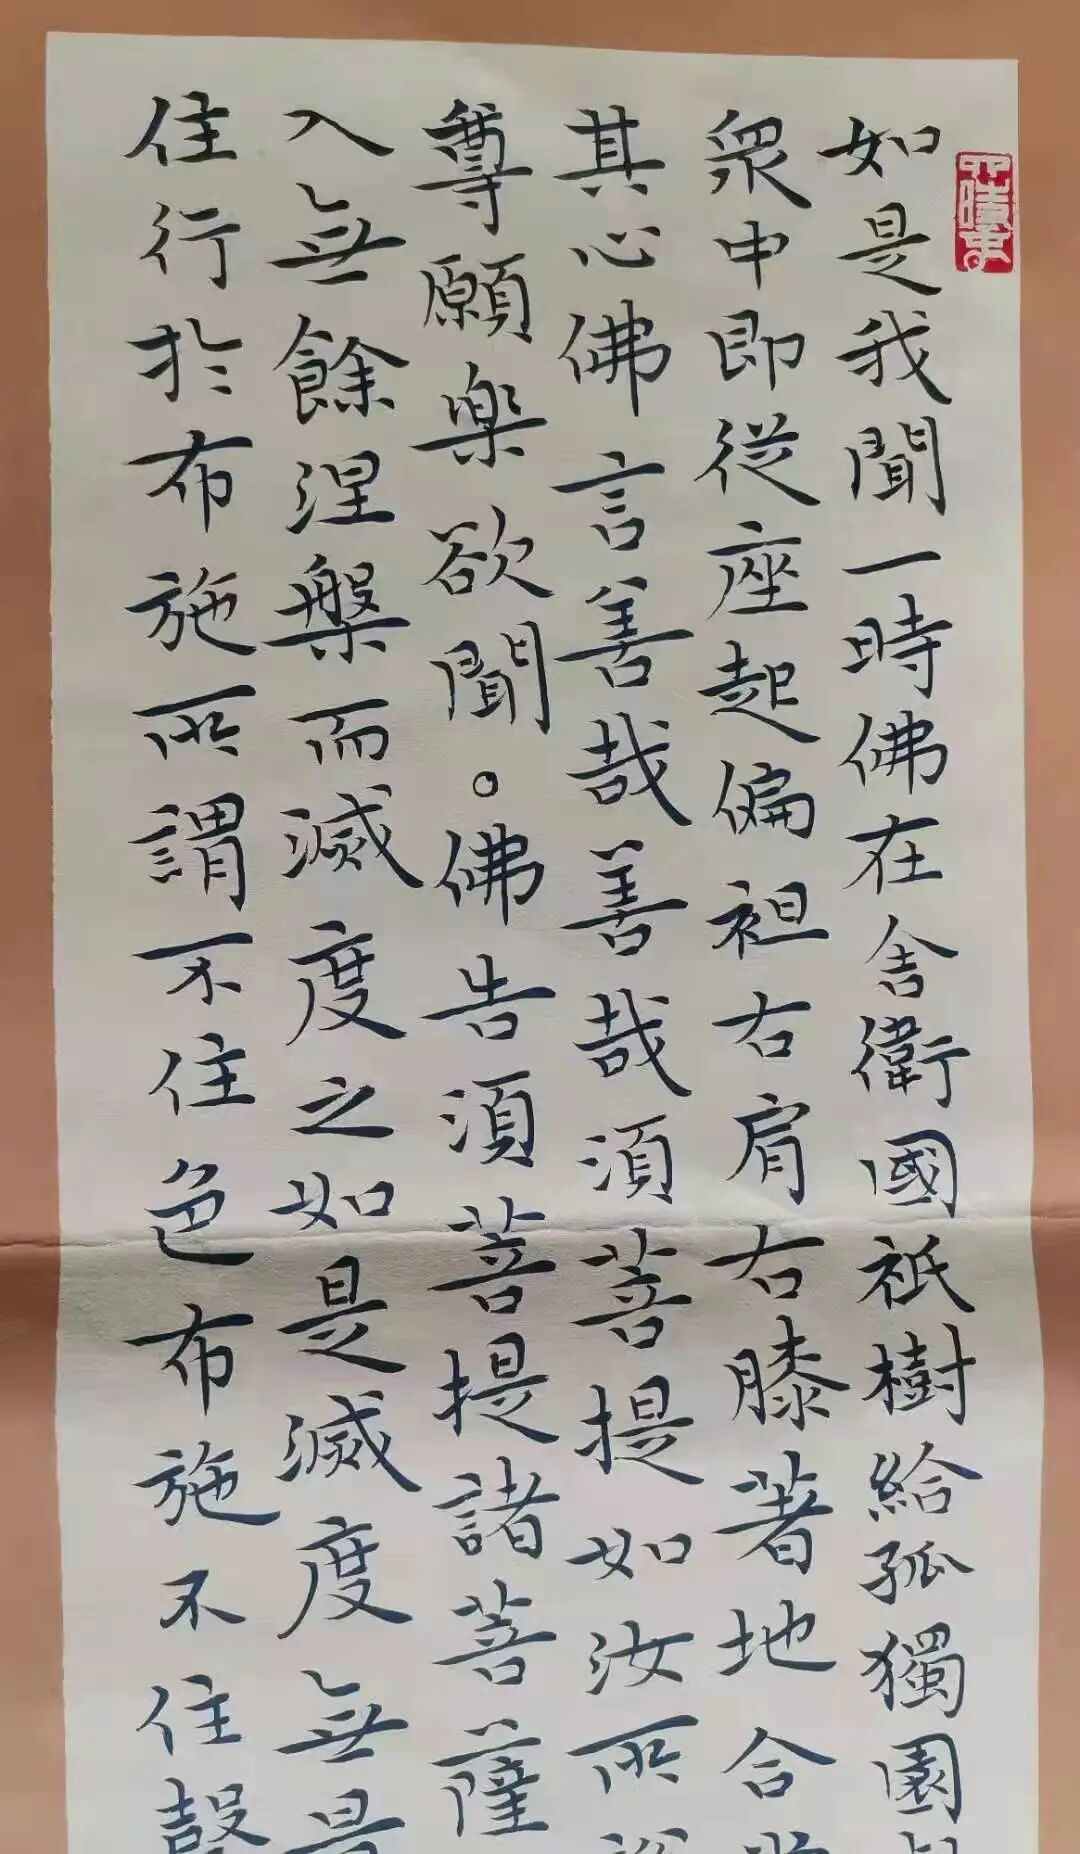 如是我聞一時佛在舍衛國祇樹給孤獨園
眾中即從座起偏袒右肩右膝著地合
其心佛言善哉善哉須菩提如汝所
尊願樂欲聞。佛告須菩提諸菩薩
入無餘涅槃而滅度之如是滅度無
住行於布施所謂不住色布施不住聲